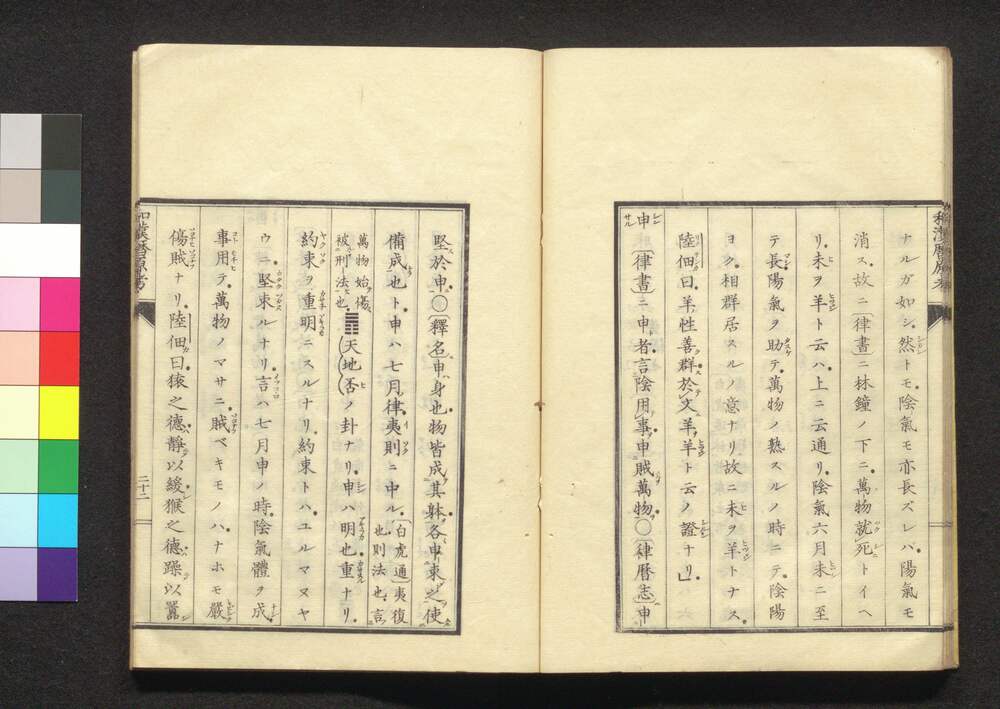 ナルガ如シ然トモ陰氣モ亦長ズレバ陽氣モ
消ス故ニ〔律書〕ニ林鐘ノ下ニ萬物就死トイヘ
リ未ヲ羊ト云ハ上ニ云通リ陰氣六月未ニ至
テ長陽氣ヲ助テ萬物ノ熟スルノ時ニテ陰陽
ヨク相群居スルノ意ナリ故ニ未ヲ羊トナス
陸佃曰羊性善群於文羊羊ト云ノ證ナリ
申〔律書〕ニ申者言陰用事申賊萬物○〔律暦志〕申
堅於申○〔釋名〕申身也物皆成其躰各申束之使
備成也ト申ハ七月律夷則ニ中ル〔白虎通〕夷復也則法也言
萬物始傷被刑法也䷋天地否ノ卦ナリ申ハ明也重ナリ
約束ヲ重明ニスルナリ約束トハユルマヌヤ
ウニ堅束ルナリ言ハ七月申ノ時陰氣體ヲ成
事用テ萬物ノマサニ賊ベキモノハナホモ嚴
傷賊ナリ陸佃曰猿之德靜以緩猴之德躁以囂
二十二